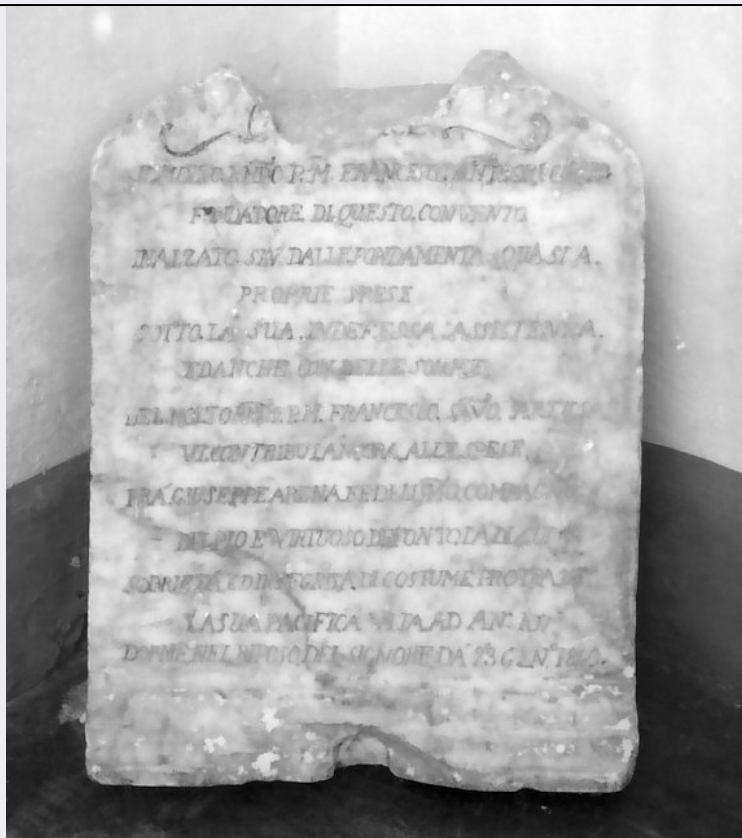 P.M. FRANCESCO
FONDATORE. DI QUESTO. CONVENTO
INALZATO. SIN. DALLE. FONDAMENTA. QUASI A.
PROPRIE SPESE
SOTTO. LA SUA. INDEFESSA. ASSISTENZA.
ED ANCHE. CON. DELLE SOMME
DEL MOLTO P.M. FRANCESCO.
VI. CONTRIBUI. ANCORA. ALLE. SPESE.
FRA. GIUSEPPE ARENA. FEDELISSIMO. COMPAGNO
DEL PIO E VIRTUOSO DEFONTO LA DI CUI
SOBRIETÀ E D'INTEGRITÀ DI COSTUME PROTRASSE
LA SUA PACIFICA VITA. AD AN:
DORME NEL RIPOSO DEL SIGNORE DA 23 GENº